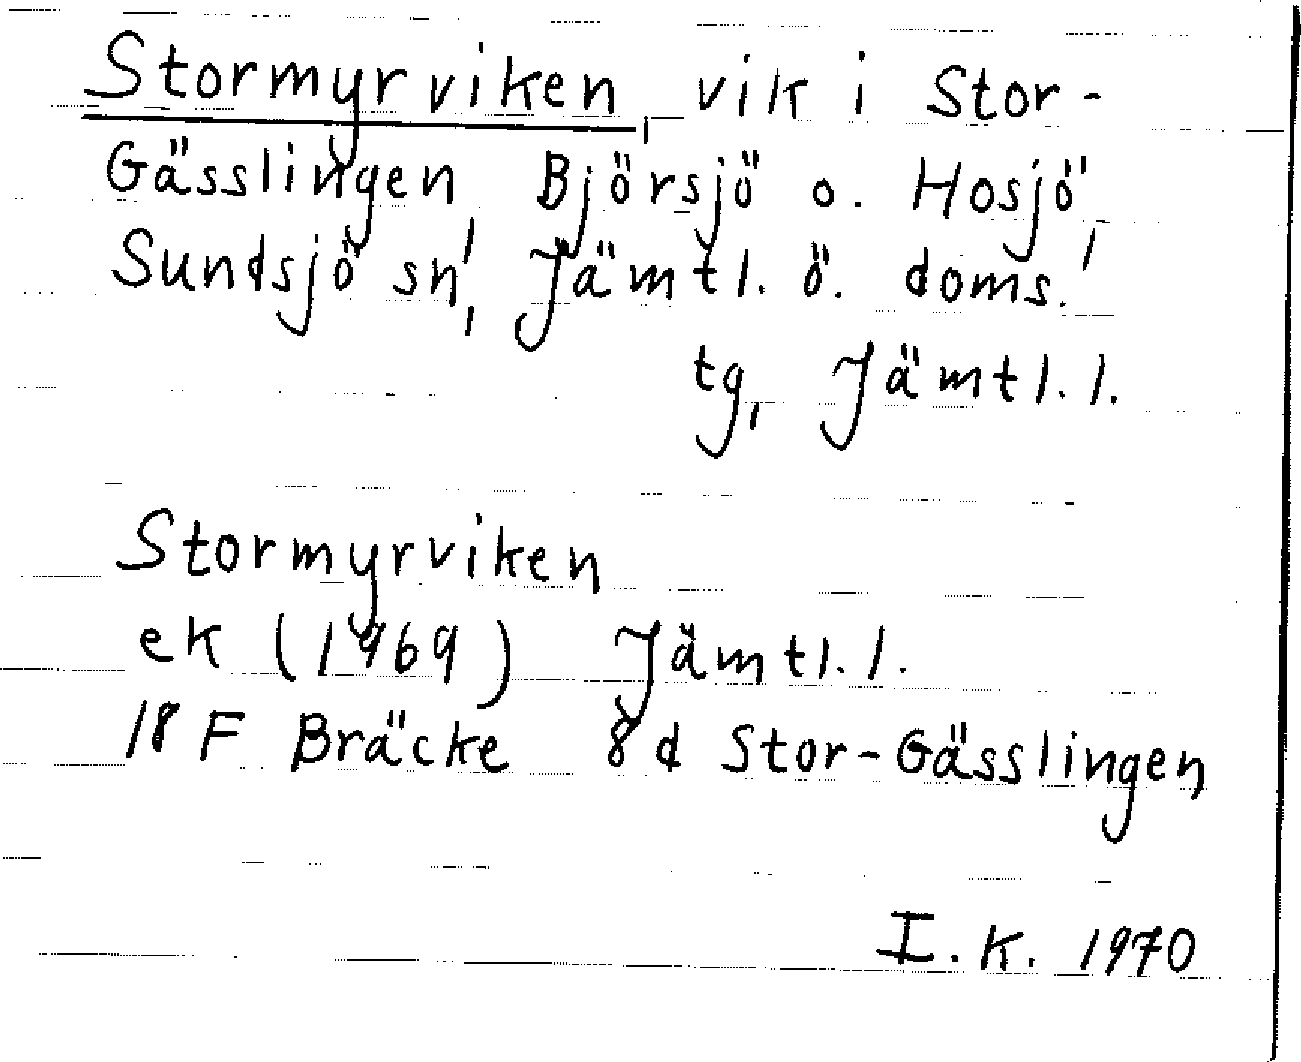 Stormyrviken, vik i Stor-
Gässlingen, Björsjö o. Hosjö,
Sundsjö sn, Jämtl. ö. doms.
tg, Jämtl. l.
Stormyrviken
ek (1969) Jämtl. l.
18 F Bräcke 8 d Stor-Gässlingen
I. K. 1970